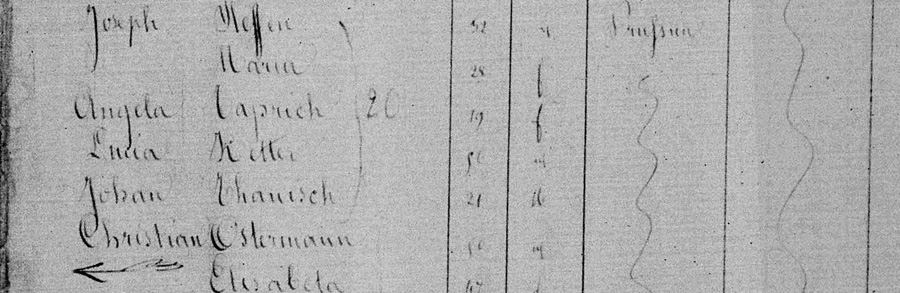 Joseph Steffen 32 m Preussen
Maria 28 f
Angela Caprich 20 19 f
Lucia Ketter
Johan Thanisch 21 m
Christian Ostermann m
Elisabeta 47